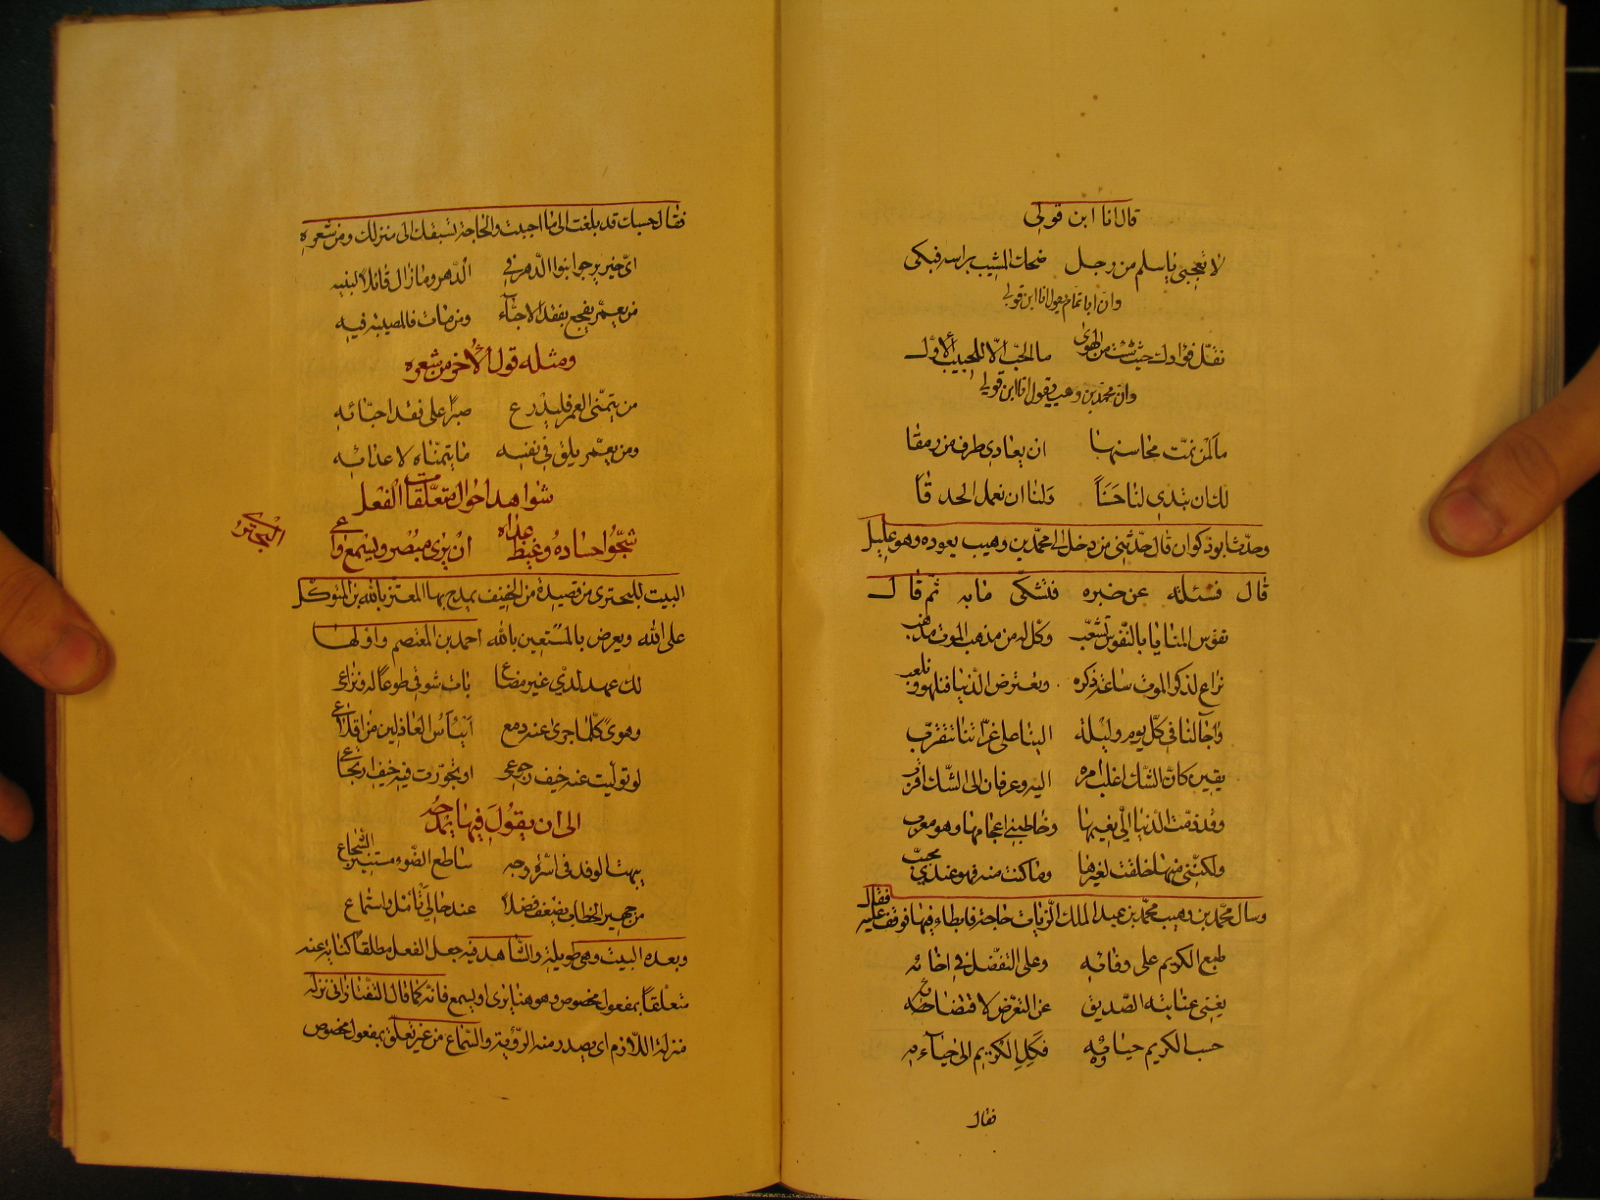 قال انا ابن قولي
لا تعجبي ياسلم من رجل ضحك المشيب براسه فبكى
وان ابا تمام يقول انا ابن قولي
نقل فؤادك حيث شئت من الهوى ما الحب الا للحبيب الاول
وان محمد بن وهيب يقول انا ابن قولي
ما لمن تمت محاسنها ان يعادي طرف من رمقا
لك ان تبدي لنا حسنا ولنا ان نعمل الحدقا
وحدث ابو ذكوان قال حدثني من دخل الى محمد بن وهيب يعوده وهو عليل
قال فسئلته عن خبره فتشكى ما به ثم قال
نفوس المنايا بالنفوس تشعب وكل له من مذهب الموت مذهب
نراع لذكر الموت ساعة ذكره وتعترض الدنيا فنلهو ونلعب
وآجالنا في كل يوم وليلة الينا على غراتنا تتقرب
يقين كان الشك اغلب امره اليه وعرفان الى الشك اقرب
وقد ذمت الدنيا الي نعيمها وخاطبني اعجامها وهو معرب
ولكنني منها خلقت لغيرها وما كنت منه فهو عندي محبب
وسال محمد بن وهيب محمد بن عبد الملك الزيات حاجة فابطاء فيها فوقف عليه فقال
طبع الكريم على وفائه وعلى التفضل في اخائه
يغني عنايته الصديق عن التعرض لاقتضائه
حسب الكريم حياؤه فكل الكريم الى حيآءه
فقال
فقال حسبك قد بلغت الى ما احببت والحاجة تسبقك الى منزلك ومن شعره
اي خير يرجو بنوا الدهر في الدهر وما زال قاتلا لبنيه
من يعمر يفجع بفقد الاحباء ومن مات فالمصيبة فيه
ومثله قول الآخر من شعره
من يتمنى العمر فليدرع صبرا على فقد احبائه
ومن يعمر يلق في نفسه ما يتمناه لاعدائه
شواهد احوال متعلقات الفعل
شجو احساده وغيظ عداه ان يرى مبصر ويسمع واعي
البحتري
البيت للبحتري من قصيدة من الخفيف يمدح بها المعتز بالله بن المتوكل
على الله ويعرض بالمستعين بالله احمد بن المعتصم واولها
لك عهد لدي غير مضاع بات شوقي طوعا له ونزاعي
وهوى كلما جرى عنه دمع ايس العاذلين من اقلاعي
لو توليت عنه خيف رجوعي او تجوزت فيه خيف ارتجاعي
الى ان يقول فيها يمدحه
يبهت الوفد في اسرة وجه ساطع الضوء مستنير الشعاع
من جهير الخطاب يضعف فضلا عند حالي تأمل واستماع
وبعده البيت وهي طويلة والشاهد فيه جعل الفعل مطلقا كناية عنه
متعلقا بمفعول مخصوص وهو هنا يرى او يسمع فانه كما قال التفتازاني نزله
منزلة اللازم اي يصدر منه الرؤية والسماع من غير تعلق بمفعول مخصوص